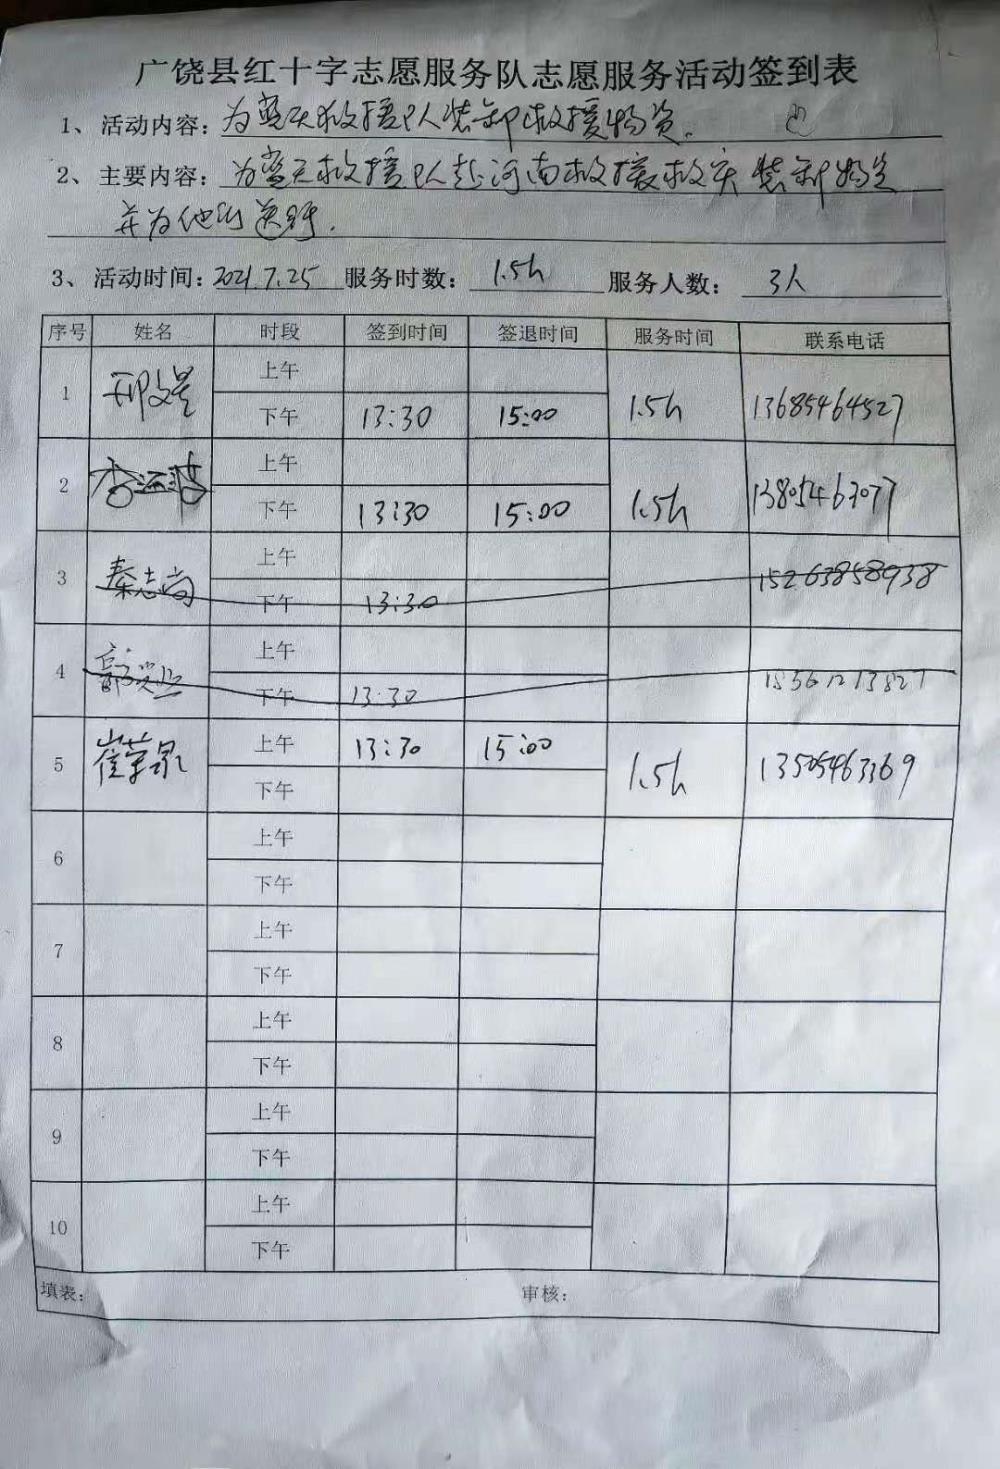 广饶县红十字志愿服务队志愿服务活动签到表
1、活动内容：为蓝天救援队装卸救援物资.
2、主要内容：为蓝天救援队赴河南救援救灾装卸物资
并为他们送行.
3、活动时间：2021.7.25 服务时数：1.5h 服务人数：3人
序号 姓名 时段 签到时间 签退时间 服务时间 联系电话
1 邢文 上午
下午 13:30 15:00 1.5h 13685464527
2 李 上午
下午 13:30 15:00 1.5h 13805463077
3 秦志尚 上午
下午 13:30 15263858938
4 郭 上午
下午 13:30 15561213827
5 崔荣泉 上午 13:30 15:00 1.5h 13505463369
下午
6 上午
下午
7 上午
下午
8 上午
下午
9 上午
下午
10 上午
下午
填表： 审核：